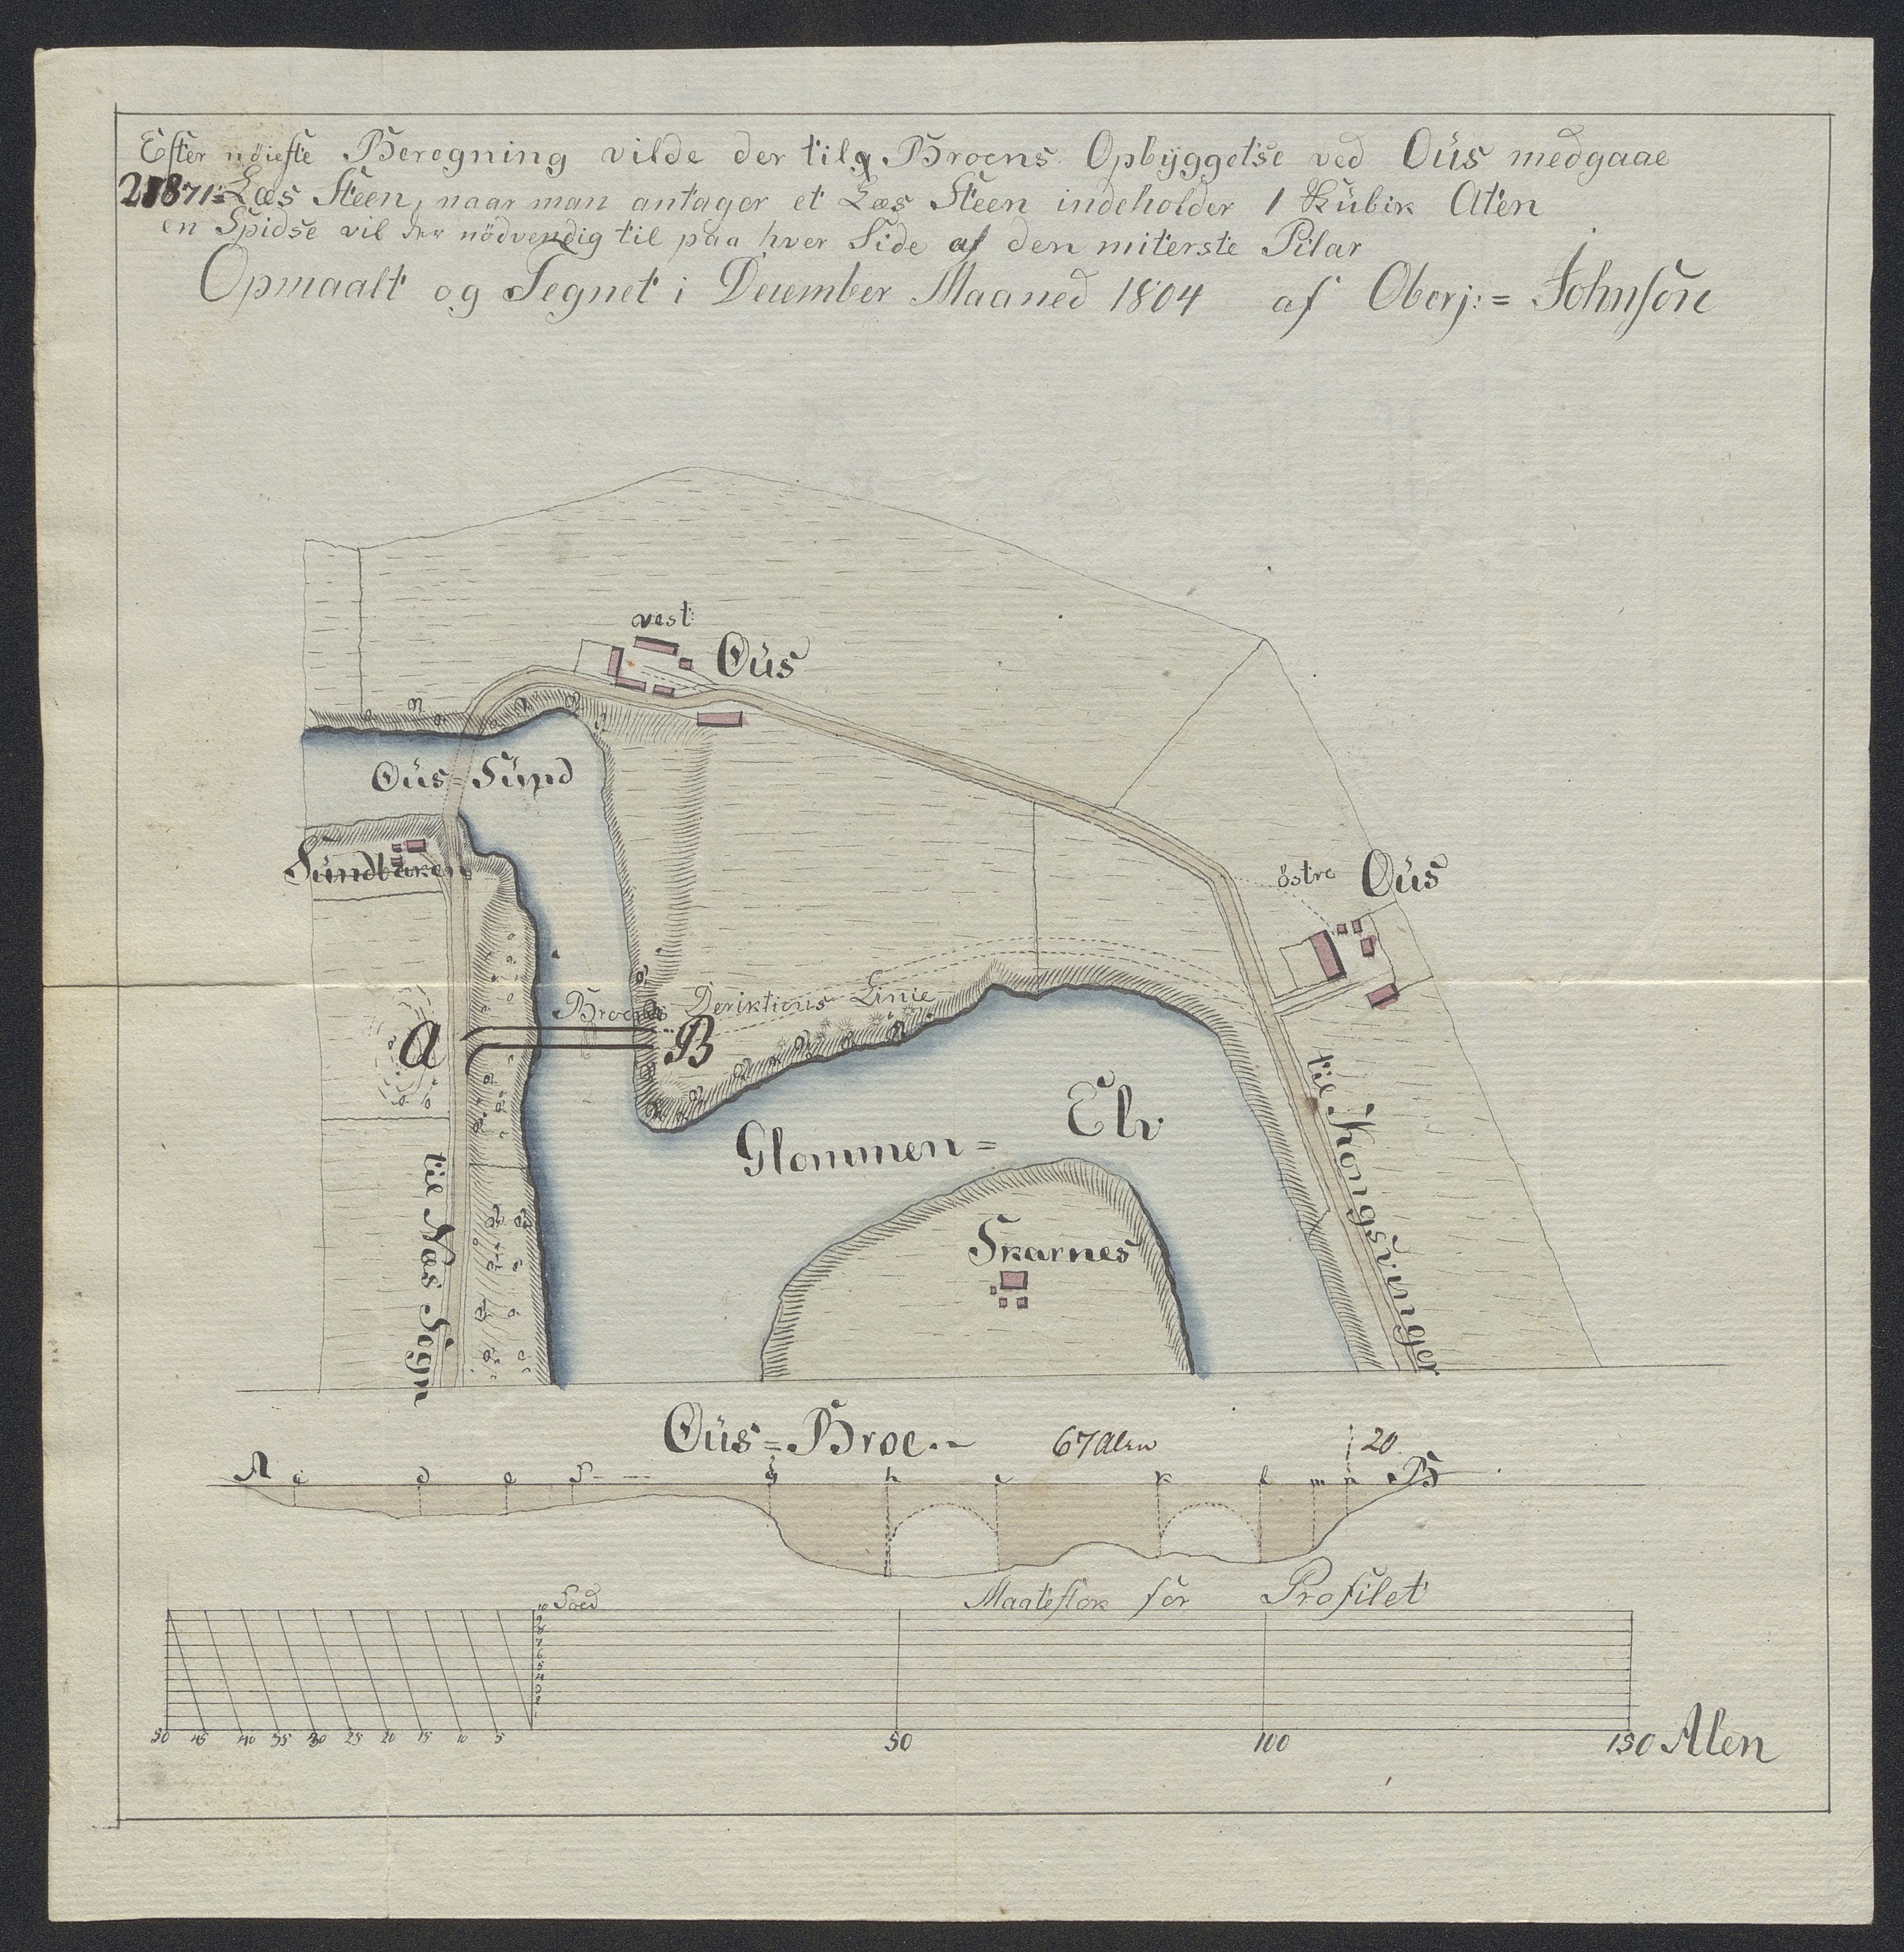 Efter nöieste Beregning vilde der til Broens Opbÿggelse ved Oüs medgaae
21871= Læs Steen, naar man antager et Læs Steen indeholder 1 Kübik Alen
en Spidse vil der nödvendig til paa hver Side af den miterste Pilar
Opmaalt og Tegnet i December Maaned 1804 af Oberj:= Johnson
vest
Oüs
Oüs=Sünd
Sundbaken
östre Oüs
Broens Deriktions Linie
A
B
til Kongsvinger
Glommen= Elv
Skarnes
til Næs Sogn
Oüs=Broe.~
67 Alen
20
A c d e f g h i k l m n B
Maatestok for Profilet
Foed
10
9
8
7
6
5
4
3
2
1
50 45 40 35 30 25 20 15 10 5 50 100 150 Alen